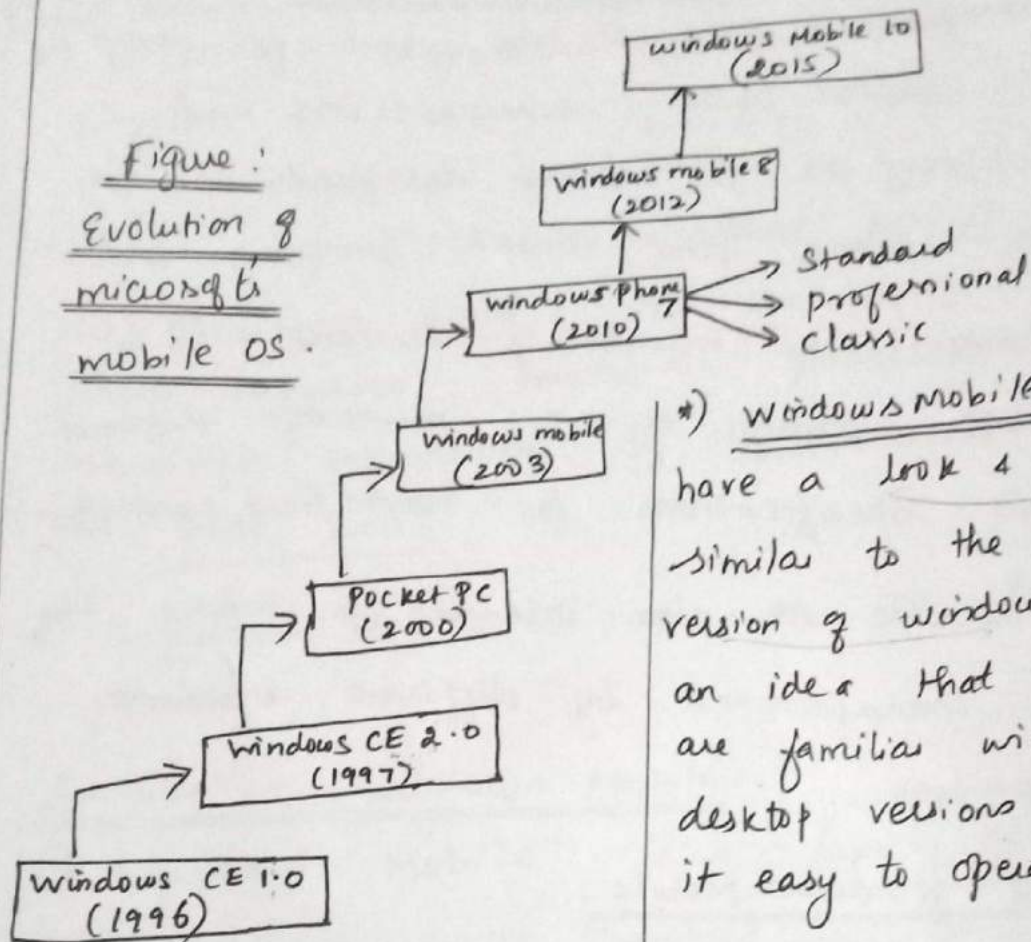 Figure :
Evolution of
microsoft's
mobile OS.
Windows Mobile 10
(2015)
Windows mobile 8
(2012)
Windows Phone 7
(2010)
Standard
professional
classic
Windows mobile
(2003)
Pocket PC
(2000)
Windows CE 2.0
(1997)
Windows CE 1.0
(1996)
*) Windows Mobile
have a look &
similar to the
version of window
an idea that
are familiar wi
desktop versions
it easy to oper